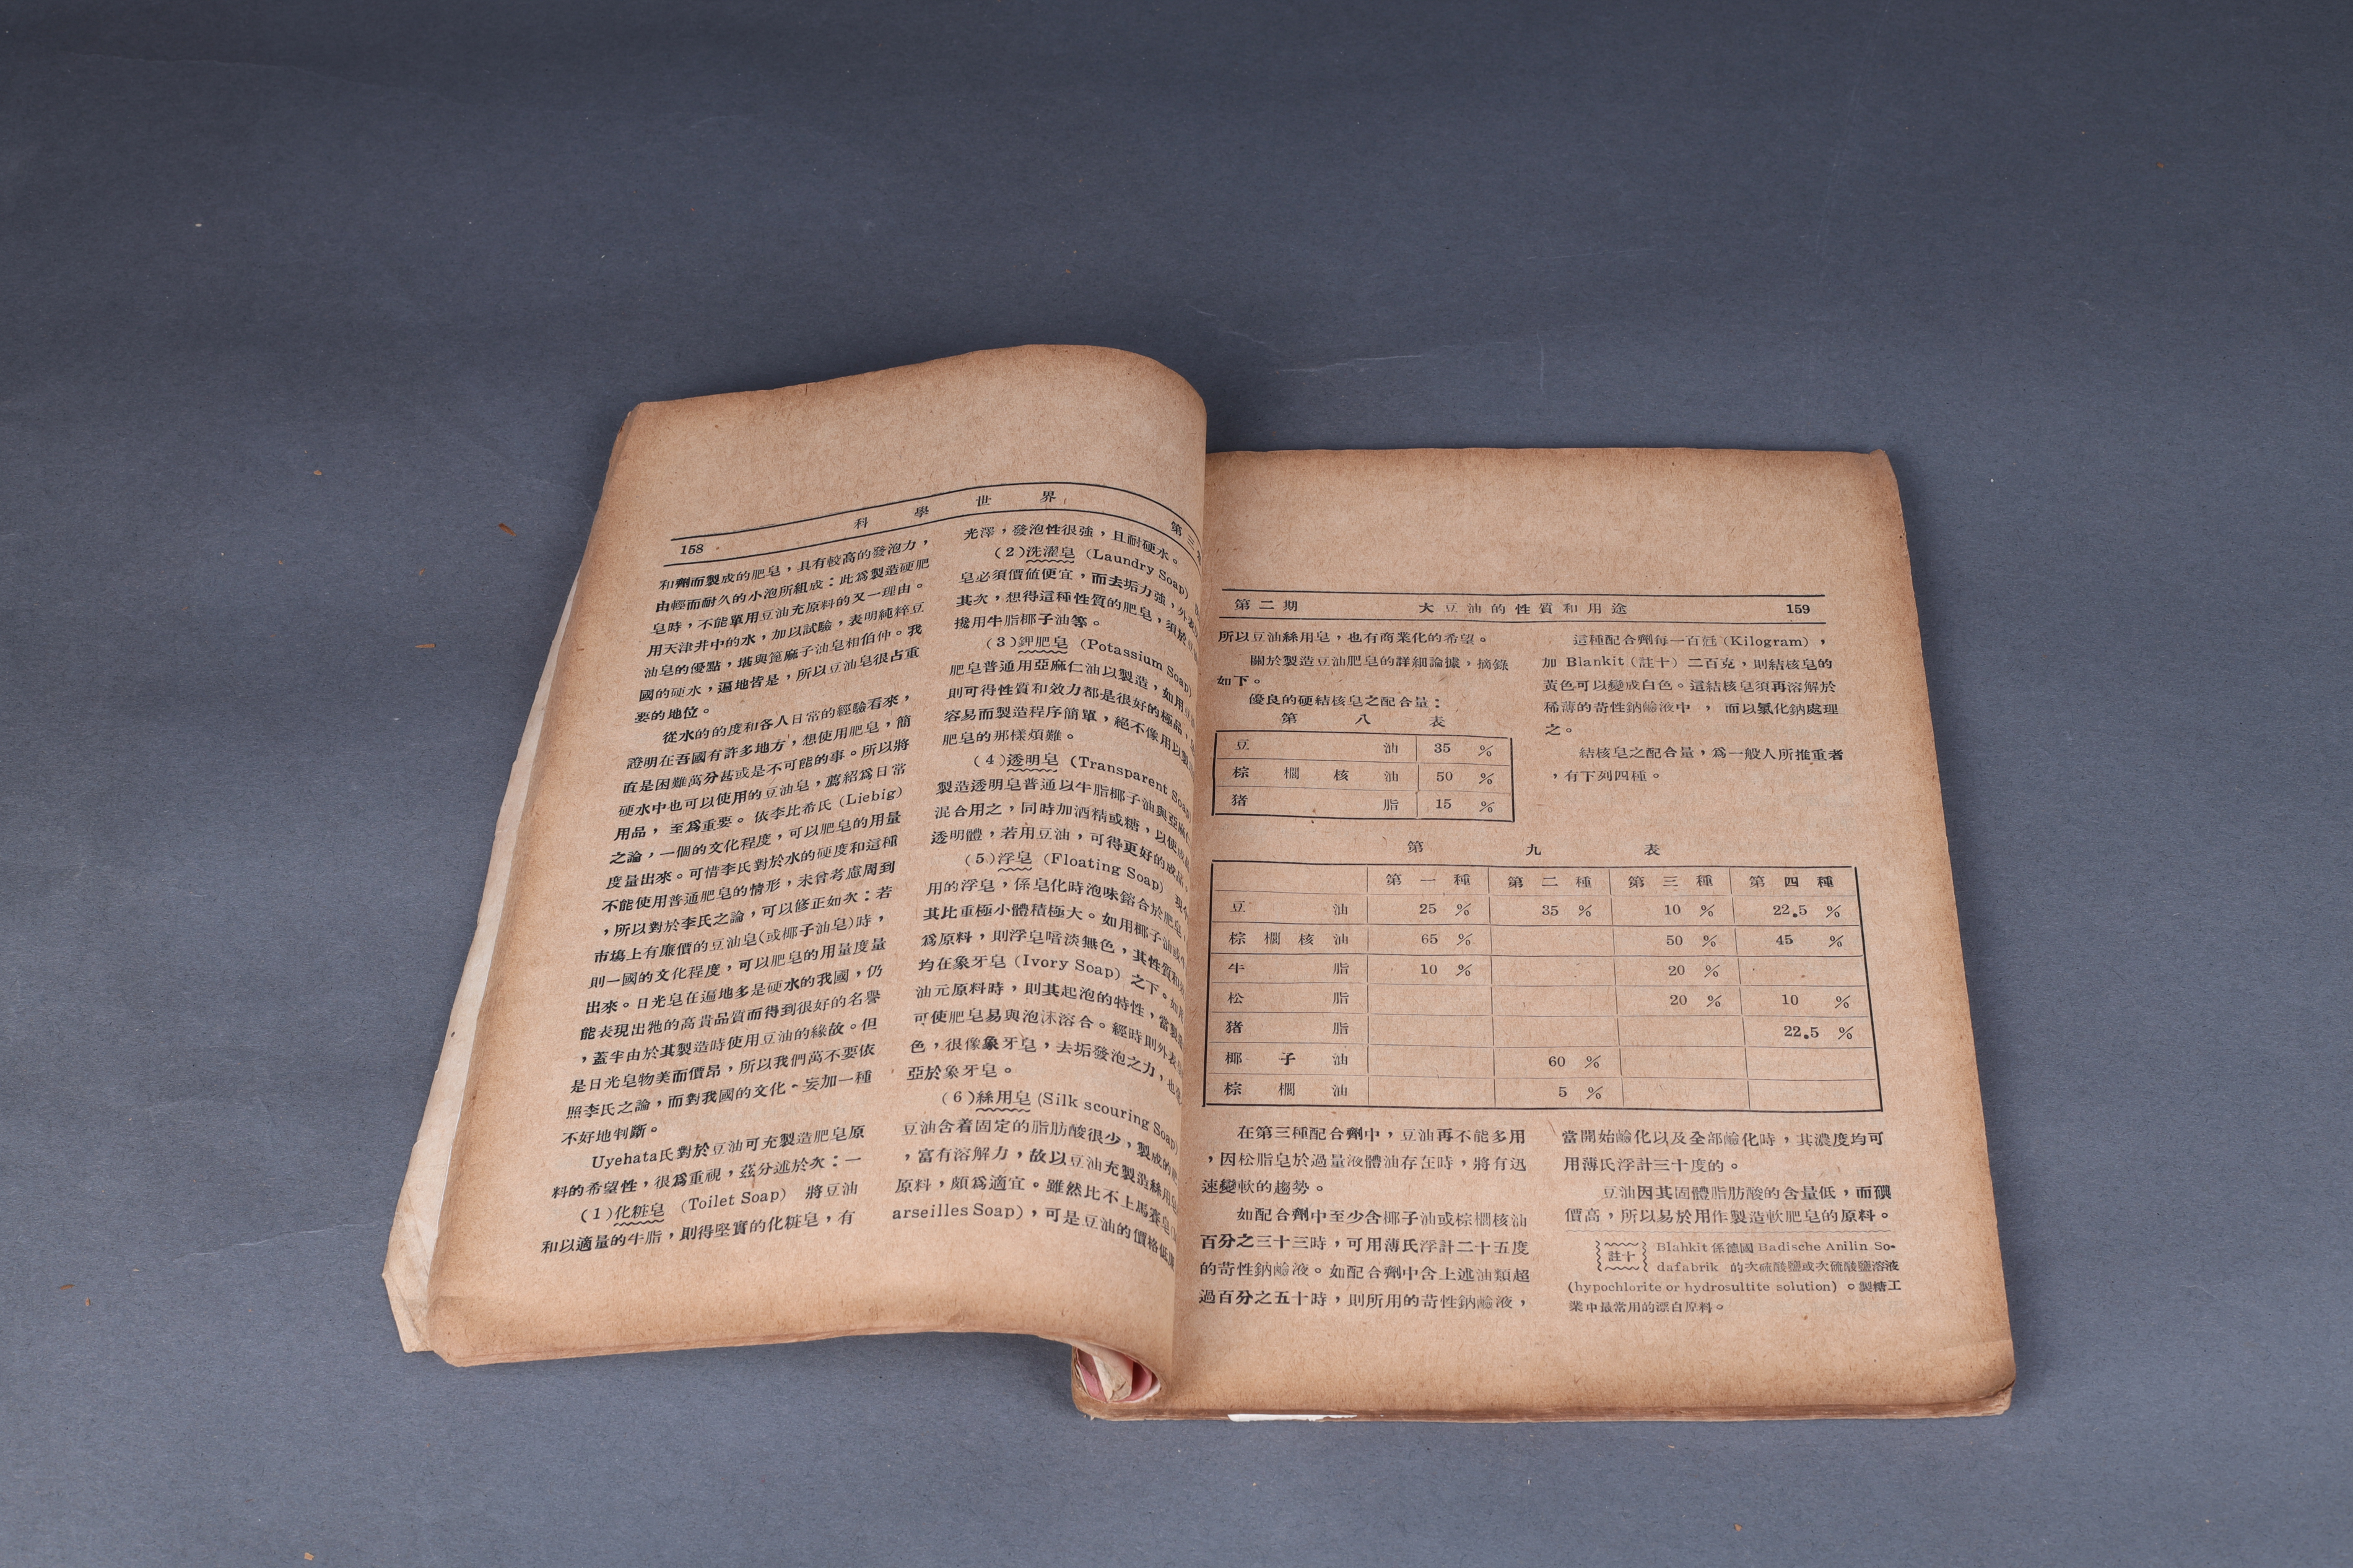 158 科學世界 第三
和劑而製成的肥皂，具有較高的發泡力，
由輕而耐久的小泡所組成：此爲製造硬肥
皂時，不能單用豆油充原料的又一理由。
用天津井中的水，加以試驗，表明純粹豆
油皂的優點，堪與箆麻子油皂相伯仲。我
國的硬水，遍地皆是，所以豆油皂很占重
要的地位。
從水的的度和各人日常的經驗看來，
證明在吾國有許多地方，想使用肥皂，簡
直是困難萬分甚或是不可能的事。所以將
硬水中也可以使用的豆油皂，薦紹爲日常
用品，至爲重要。依李比希氏（Liebig）
之論，一個的文化程度，可以肥皂的用量
度量出來。可惜李氏對於水的硬度和這種
不能使用普通肥皂的情形，未曾考慮周到
，所以對於李氏之論，可以修正如次：若
市塲上有廉價的豆油皂（或椰子油皂）時，
則一國的文化程度，可以肥皂的用量度量
出來。日光皂在遍地多是硬水的我國，仍
能表現出牠的高貴品質而得到很好的名譽
，蓋半由於其製造時使用豆油的緣故。但
是日光皂物美而價昂，所以我們萬不要依
照李氏之論，而對我國的文化，妄加一種
不好地判斷。
Uyehata氏對於豆油可充製造肥皂原
料的希望性，很爲重視，茲分述於次：一
（1）化粧皂 （Toilet Soap） 將豆油
和以適量的牛脂，則得堅實的化粧皂，有
光澤，發泡性很強，且耐硬水。
（2）洗濯皂（Laundry Soap）
皂必須價値便宜，而去垢力強，外表
其次，想得這種性質的肥皂，須於
攙用牛脂椰子油等。
（3）鉀肥皂（Potassium Soap）
肥皂普通用亞麻仁油以製造，如用豆
則可得性質和效力都是很好的極品，
容易而製造程序簡單，絕不像用以製
肥皂的那樣煩難。
（4）透明皂（Transparent Soap
製造透明皂普通以牛脂椰子油與亞麻
混合用之，同時加酒精或糖，以使成
透明體，若用豆油，可得更好的成品，
（5）浮皂（Floating Soap） 現今
用的浮皂，係皂化時泡味鎔合於肥皂，
其比重極小體積極大。如用椰子油或
爲原料，則浮皂暗淡無色，其性質和
均在象牙皂（Ivory Soap）之下。如用
油元原料時，則其起泡的特性，當製
可使肥皂易與泡沫溶合。經時則外表
色，很像象牙皂，去垢發泡之力，也
亞於象牙皂。
（6）絲用皂（Silk scouring Soap）
豆油含着固定的脂肪酸很少，製成的
，富有溶解力，故以豆油充製造絲用
原料，頗爲適宜。雖然比不上馬賽皂
arseilles Soap），可是豆油的價格低
第二期 大豆油的性質和用途 159
所以豆油絲用皂，也有商業化的希望。
關於製造豆油肥皂的詳細論據，摘錄
如下。
優良的硬結核皂之配合量：
第八表
豆油 35 %
棕櫚核油 50 %
猪脂 15 %
這種配合劑每一百瓩（Kilogram），
加 Blankit（註十）二百克，則結核皂的
黃色可以變成白色。這結核皂須再溶解於
稀薄的苛性鈉鹼液中，而以氯化鈉處理
之。
結核皂之配合量，爲一般人所推重者
，有下列四種。
第九表
第一種 第二種 第三種 第四種
豆油 25 % 35 % 10 % 22.5 %
棕櫚核油 65 % 50 % 45 %
牛脂 10 % 20 %
松脂 20 % 10 %
猪脂 22.5 %
椰子油 60 %
棕櫚油 5 %
在第三種配合劑中，豆油再不能多用
，因松脂皂於過量液體油存在時，將有迅
速變軟的趨勢。
如配合劑中至少含椰子油或棕櫚核油
百分之三十三時，可用薄氏浮計二十五度
的苛性鈉鹼液。如配合劑中含上述油類超
過百分之五十時，則所用的苛性鈉鹼液，
當開始鹼化以及全部鹼化時，其濃度均可
用薄氏浮計三十度的。
豆油因其固體脂肪酸的含量低，而碘
價高，所以易於用作製造軟肥皂的原料。
註十 Blahkit 係德國 Badische Anilin So-
dafabrik 的次硫酸鹽或次硫酸鹽溶液
(hypochlorite or hydrosultite solution)。製糖工
業中最常用的漂白原料。